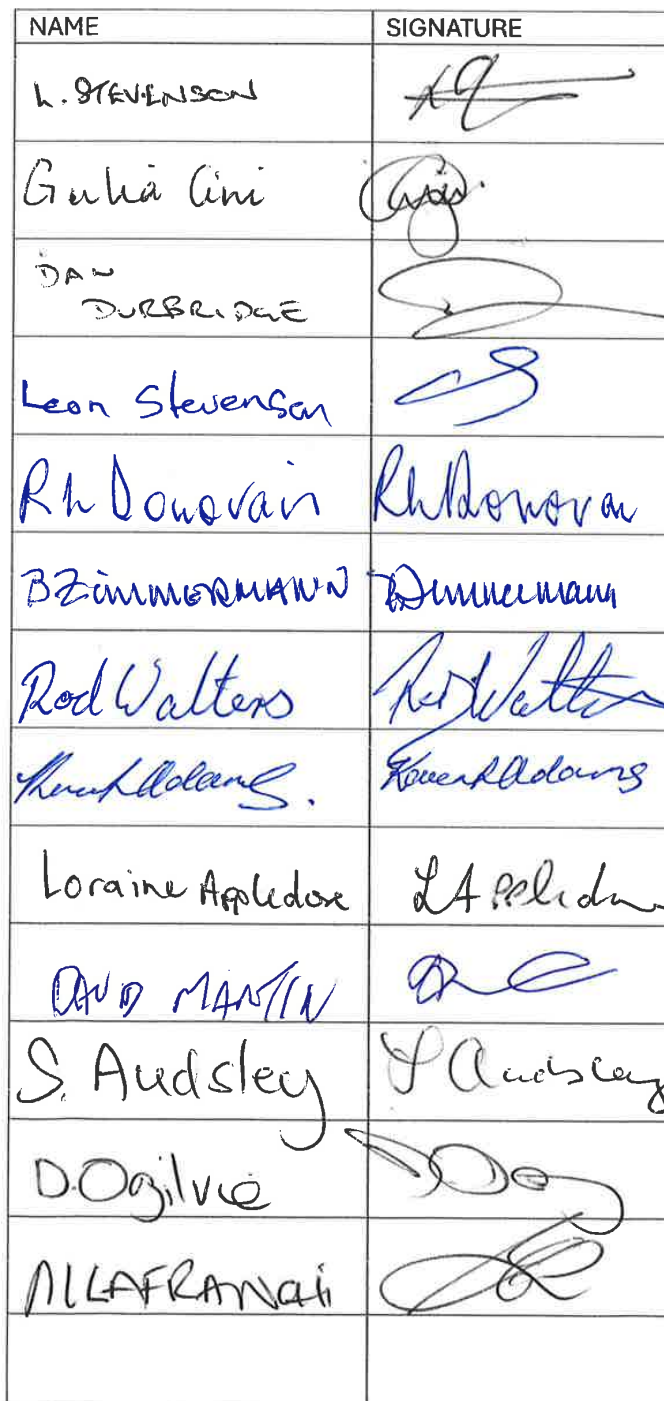 NAME SIGNATURE
L. STEVENSON
Giulia Cini
DAN
DURBRIDGE
Leon Stevenson
Rh Donovan Rh Donovan
B ZIMMERMANN BZimmermann
Rod Walters Rod Walters
Adams. Adams
Loraine Appledore LAppledore
DAVID MARTIN
S. Audsley S Audsley
D. Ogilvie
LAFRANCHI